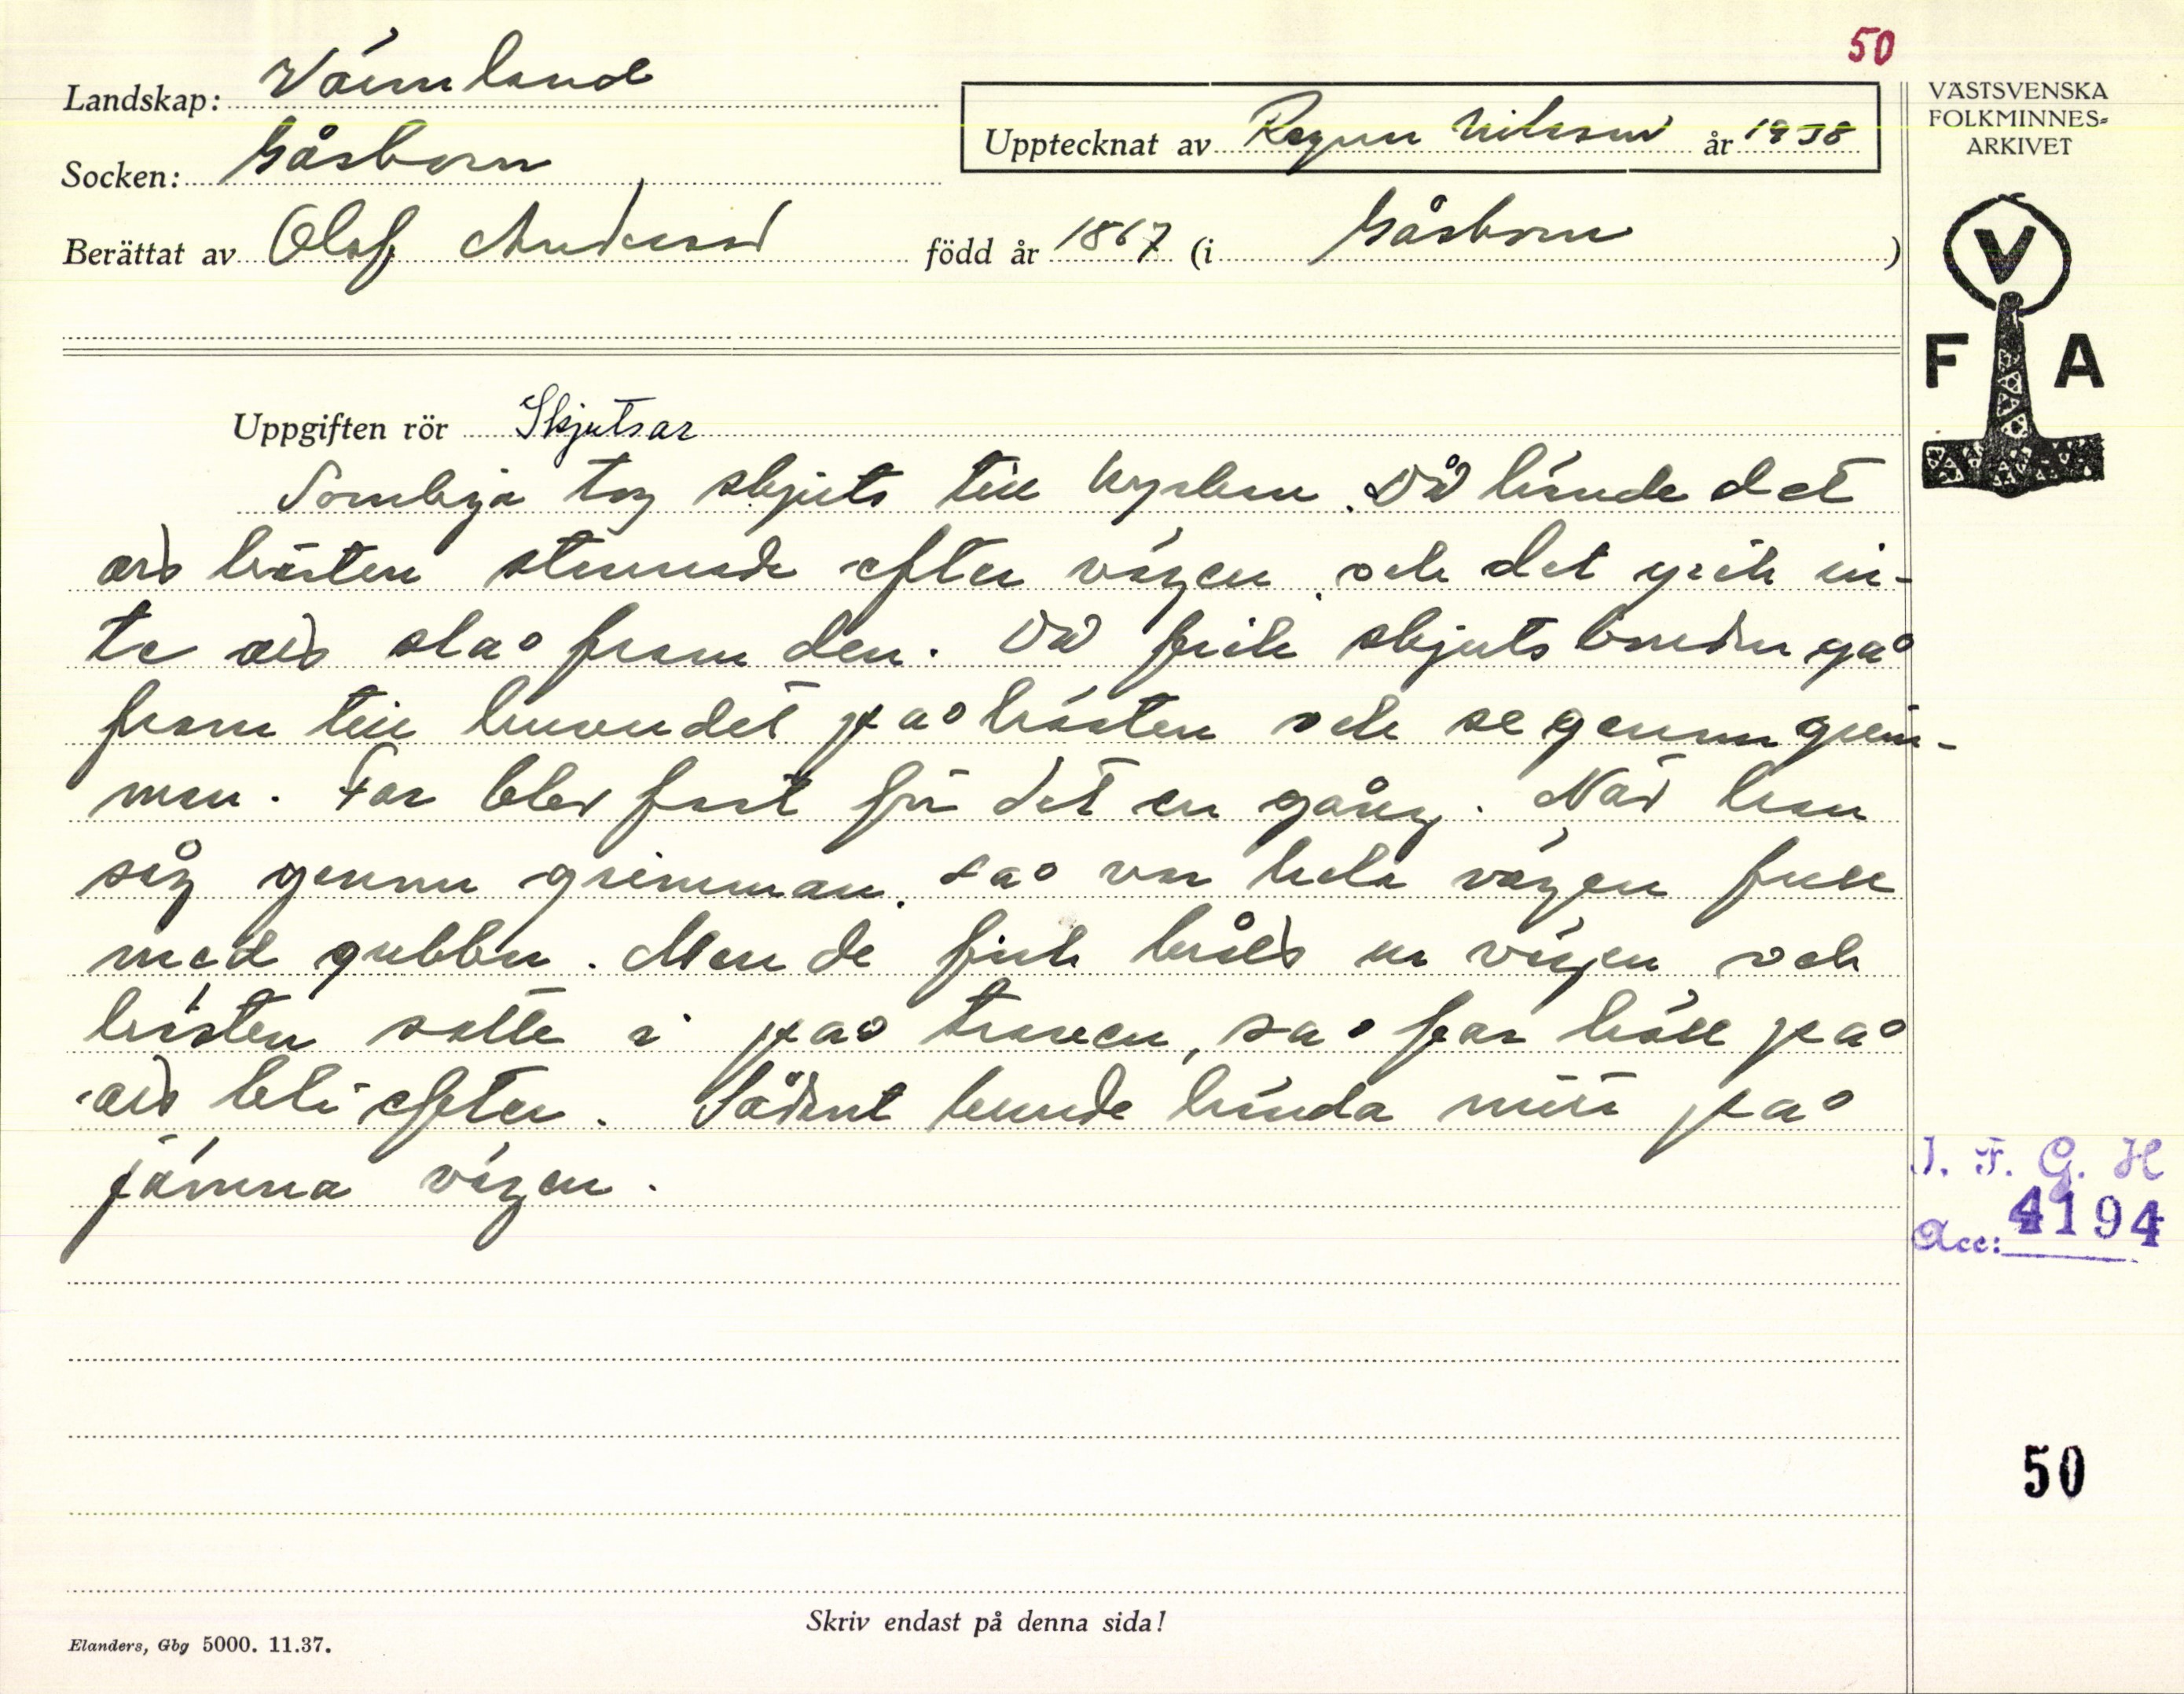 50
Landskap: Värmland
Socken: Gåsborn
Upptecknat av Ragnar Nilsson år 1938
Berättat av Olof Andersson född år 1867 (i Gåsborn)
VÄSTSVENSKA
FOLKMINNES=
ARKIVET
V
F A
Uppgiften rör Skjutsar
Somliga tog skjuts till kyrkan. Då hände det
att hästen stannade efter vägen och det gick in-
te att slå fram den. Då fick skjutsbonden gå
fram till huvudet på hästen och se genom grim-
man. Far blev fast för det en gång. När han
såg genom grimman, så var hela vägen full
med gubbar. Men de fick brått ur vägen och
hästen satte i på traven, så far höll på
att bli efter. Sådant kunde hända mitt på
jämna vägen.
I. F. G. H
Acc: 4194
50
Skriv endast på denna sida!
Elanders, Gbg 5000. 11.37.